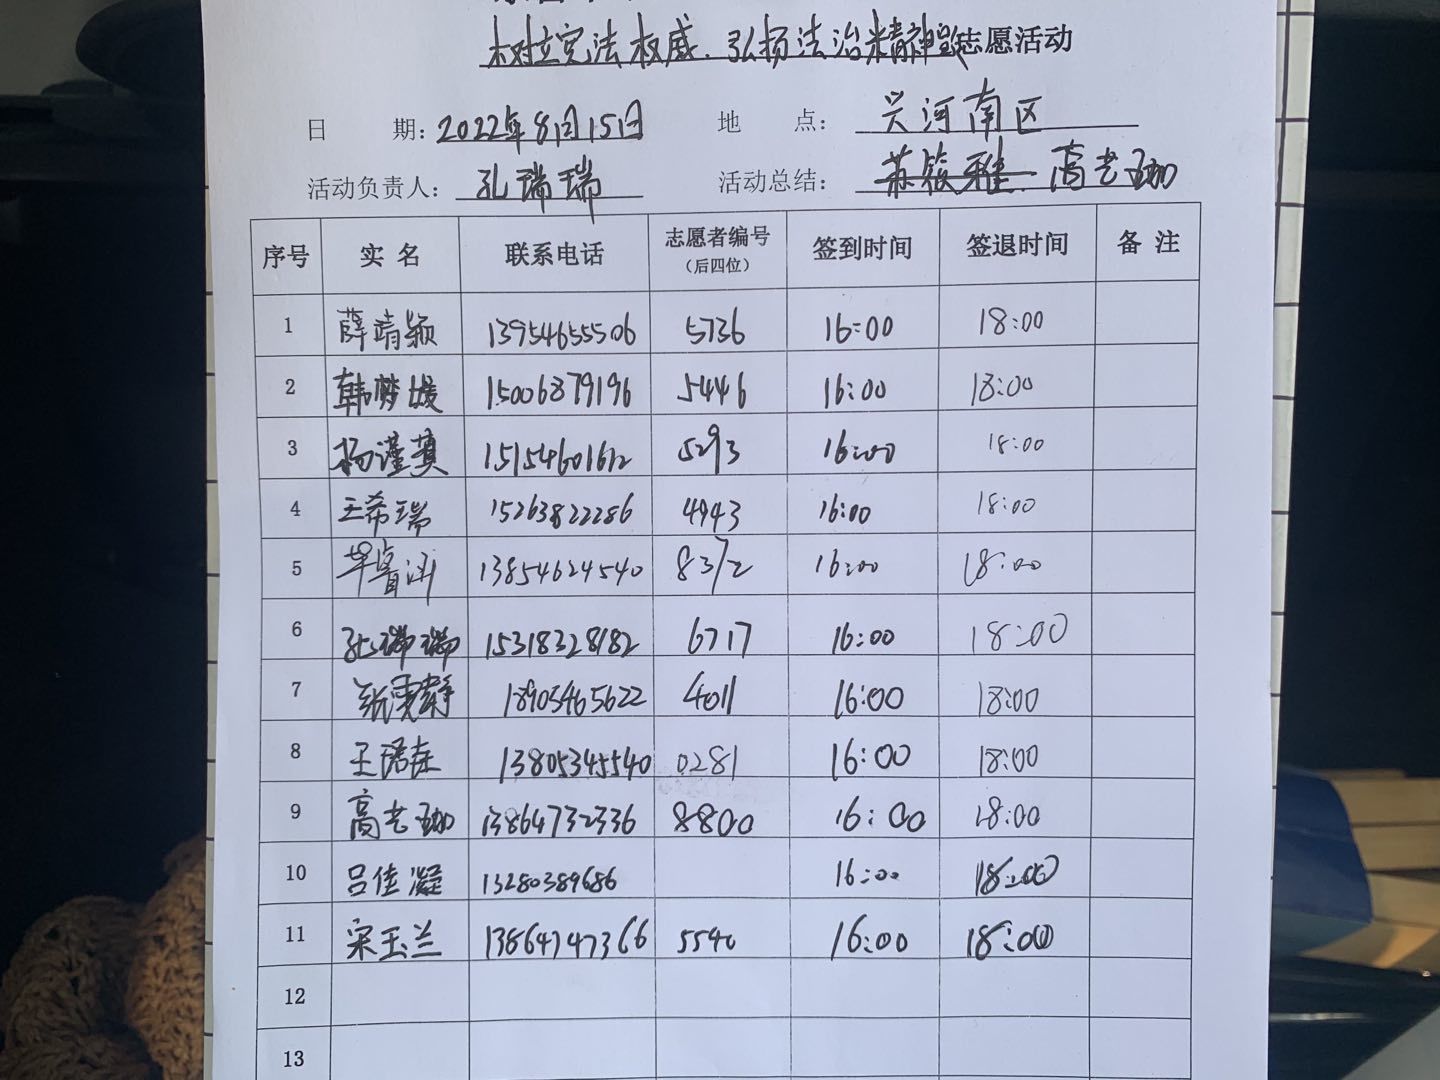 树立宪法权威、弘扬法治精神 志愿活动
日 期：2022年8月15日 地 点：兴河南区
活动负责人：孔瑞瑞 活动总结：苏筱雅、高艺珈
序号 实名 联系电话 志愿者编号（后四位） 签到时间 签退时间 备注
1 薛靖颖 13954655506 5736 16:00 18:00
2 韩梦媛 15006879196 5446 16:00 18:00
3 杨谨萁 15154601612 5293 16:00 18:00
4 王希瑞 15263822286 4943 16:00 18:00
5 13854624540 8372 16:00 18:00
6 孔瑞瑞 15318328182 6717 16:00 18:00
7 18905465622 4011 16:00 18:00
8 13805345540 0281 16:00 18:00
9 高艺珈 13864732336 8800 16:00 18:00
10 吕佳凝 13280389686 16:00 18:00
11 宋玉兰 13864747366 5540 16:00 18:00
12
13